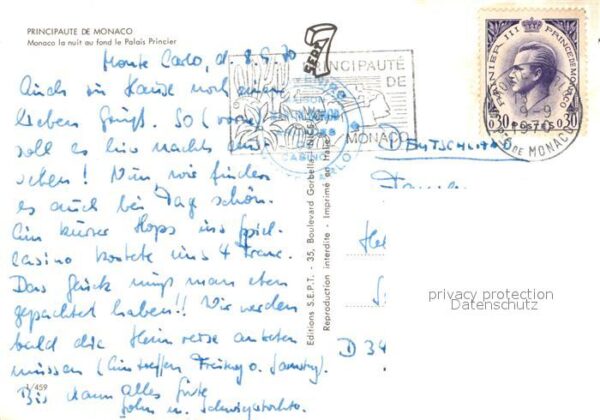 PRINCIPAUTE DE MONACO
Monaco la nuit au fond le Palais Princier
Monte Carlo, d. 8.9.70
Auch zu Hause noch einen
lieben Gruß. So (vorn)
soll es hier nachts aus-
sehen! Nun wir finden
es auch bei Tag schön.
Ein kurzer Hops ins Spiel-
casino kostete uns 4 Franc.
Das Glück muß man eben
gepachtet haben!! Wir werden
bald die Heimreise antreten
müssen (Eintreffen Freitag o. Samstag).
Bis dann alles Gute
Sohn u. Schwiegertochter
1/459
SEPT
PRINCIPAUTÉ
DE
MONACO
CASINO
RAINIER III PRINCE DE MONACO
0.30 POSTES 0.30
DE MONACO
DEUTSCHLAND
D 34
Editions S.E.P.T. - 35, Boulevard Gorbella
Reproduction interdite - Imprimé en Italie
privacy protection
Datenschutz